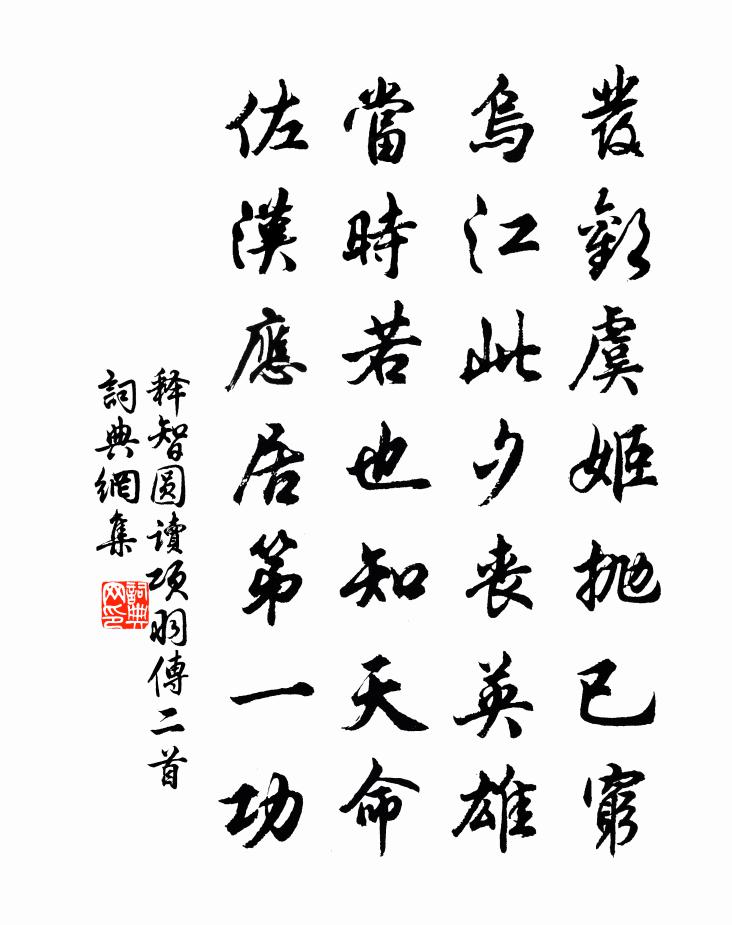 發歎虞姬抛已窮
烏江此夕喪英雄
當時若也知天命
佐漢應居第一功
释智圆讀項羽傳二首
詞典網集
詞典网印